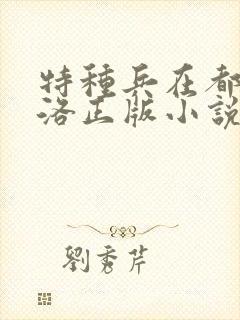 特種兵在都
洛正版小說
劉秀芹